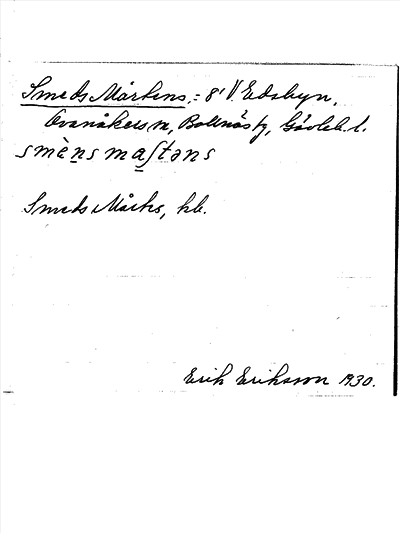 Smeds Mårtens, = 8' V. Edsbyn,
Ovanåkers sn, Bollnäs tg, Gävleb. l.
smèns maʃtəns
Smeds Mårts, hb.
Erik Eriksson 1930.